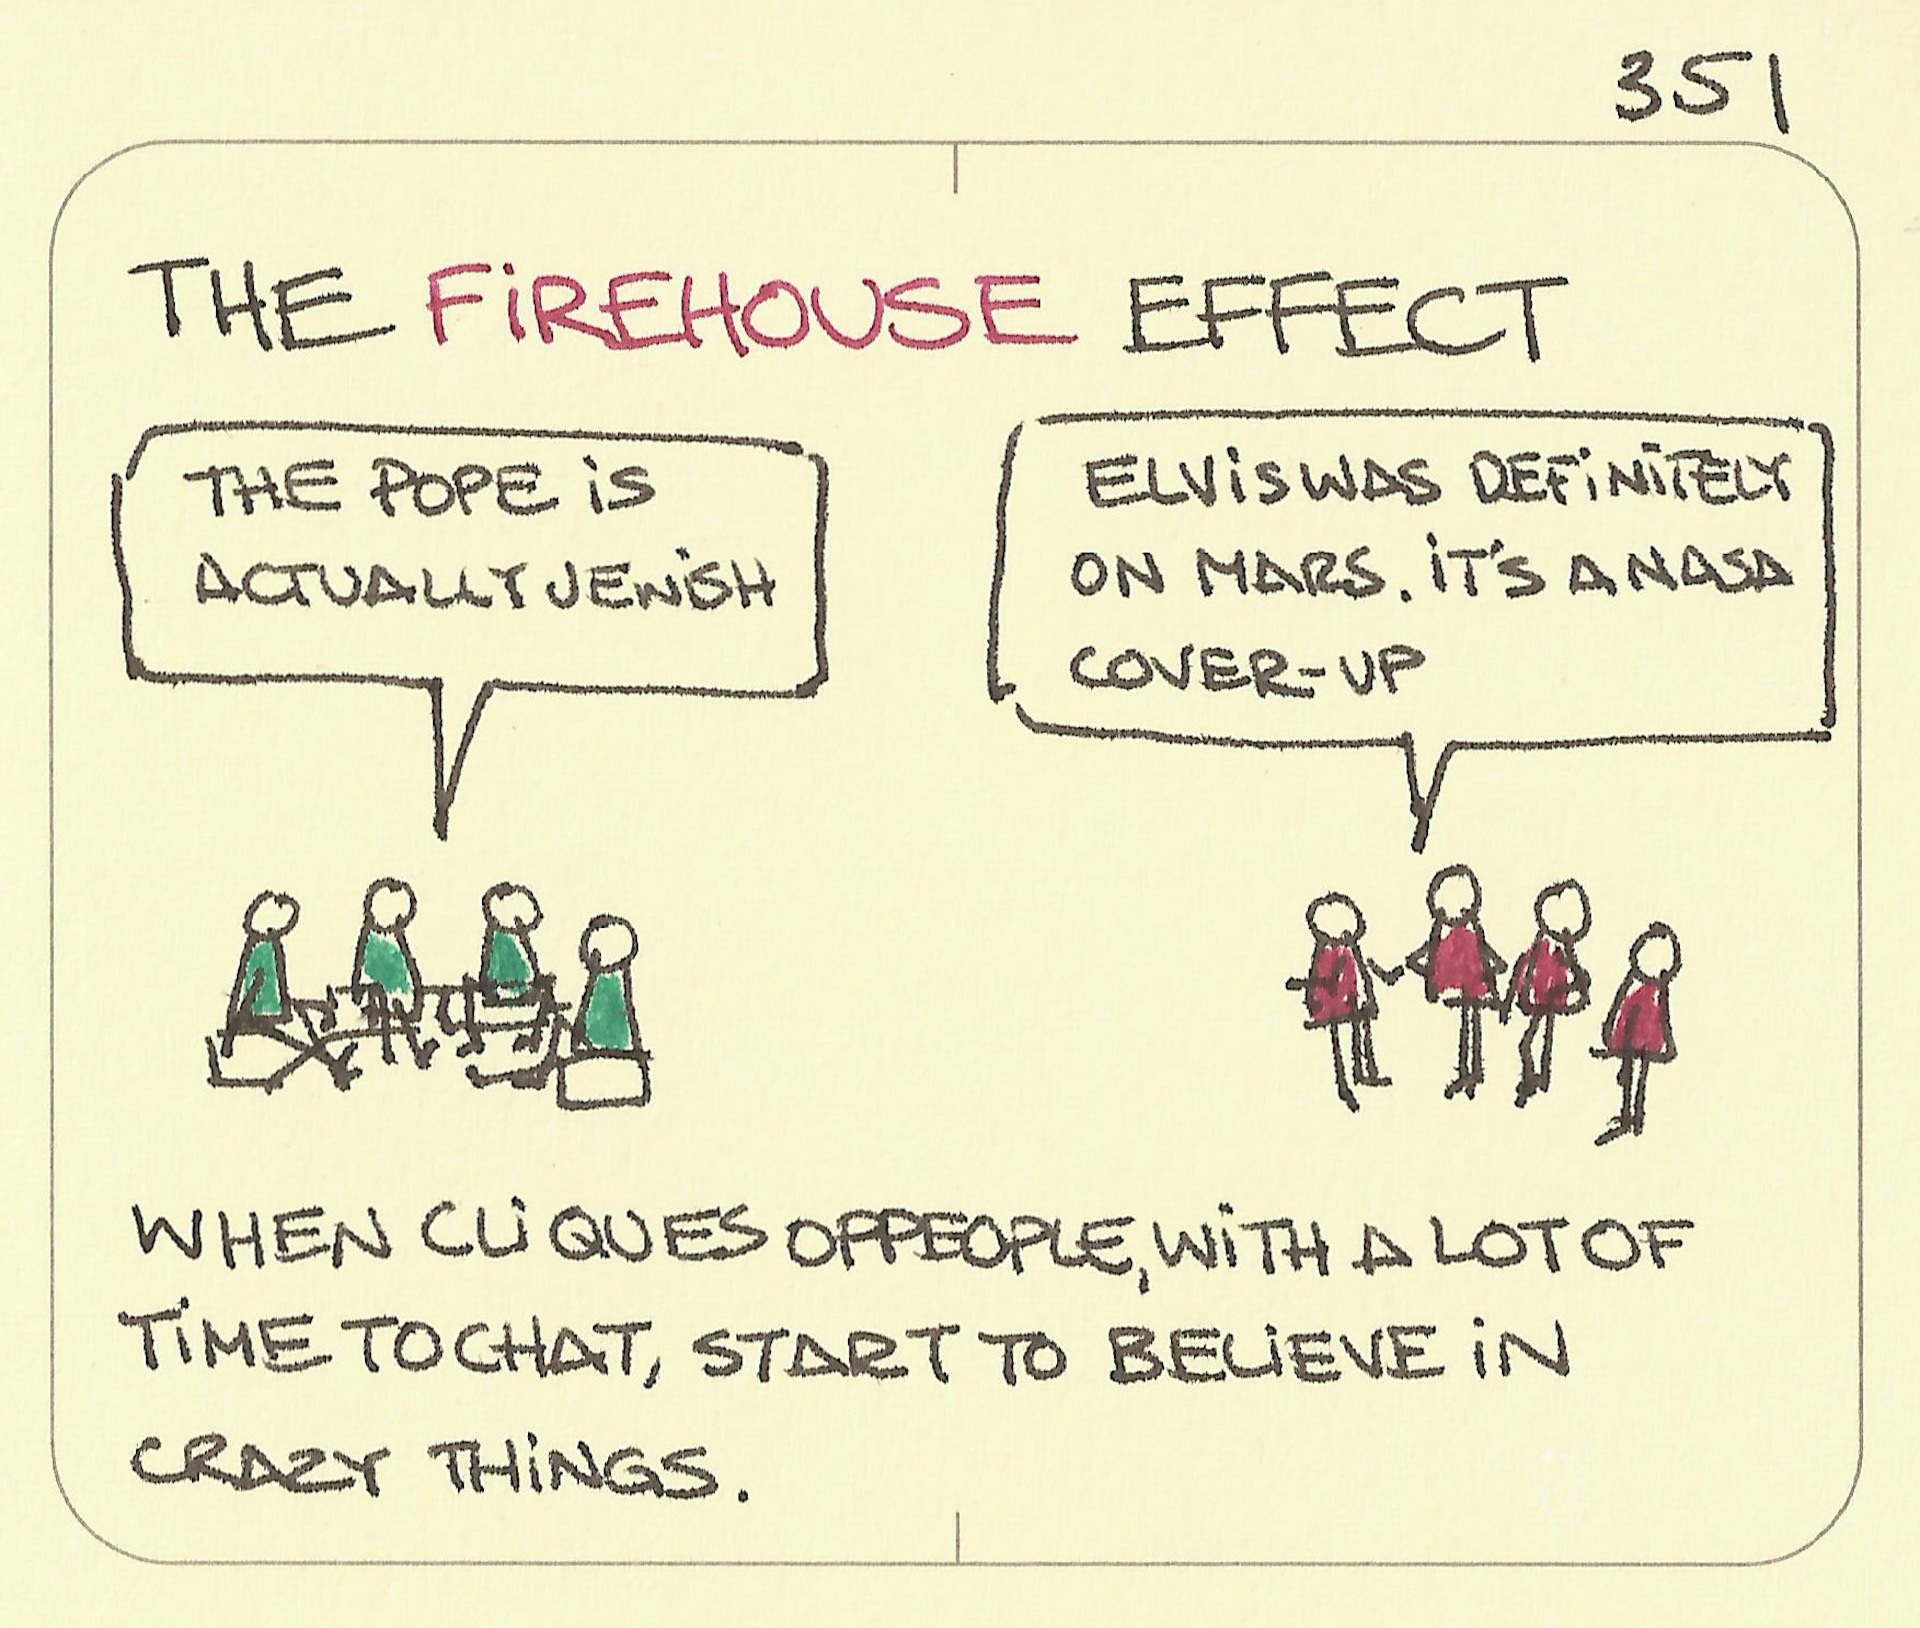 351
THE FiREHOUSE EFFECT
THE POPE iS
ACTUALLY JEWiSH
ELViS WAS DEFiNiTELY
ON MARS. iT'S A NASA
COVER-UP
WHEN CLiQUES OF PEOPLE, WiTH A LOT OF
TiME TO CHAT, START TO BELiEVE iN
CRAZY THiNGS.